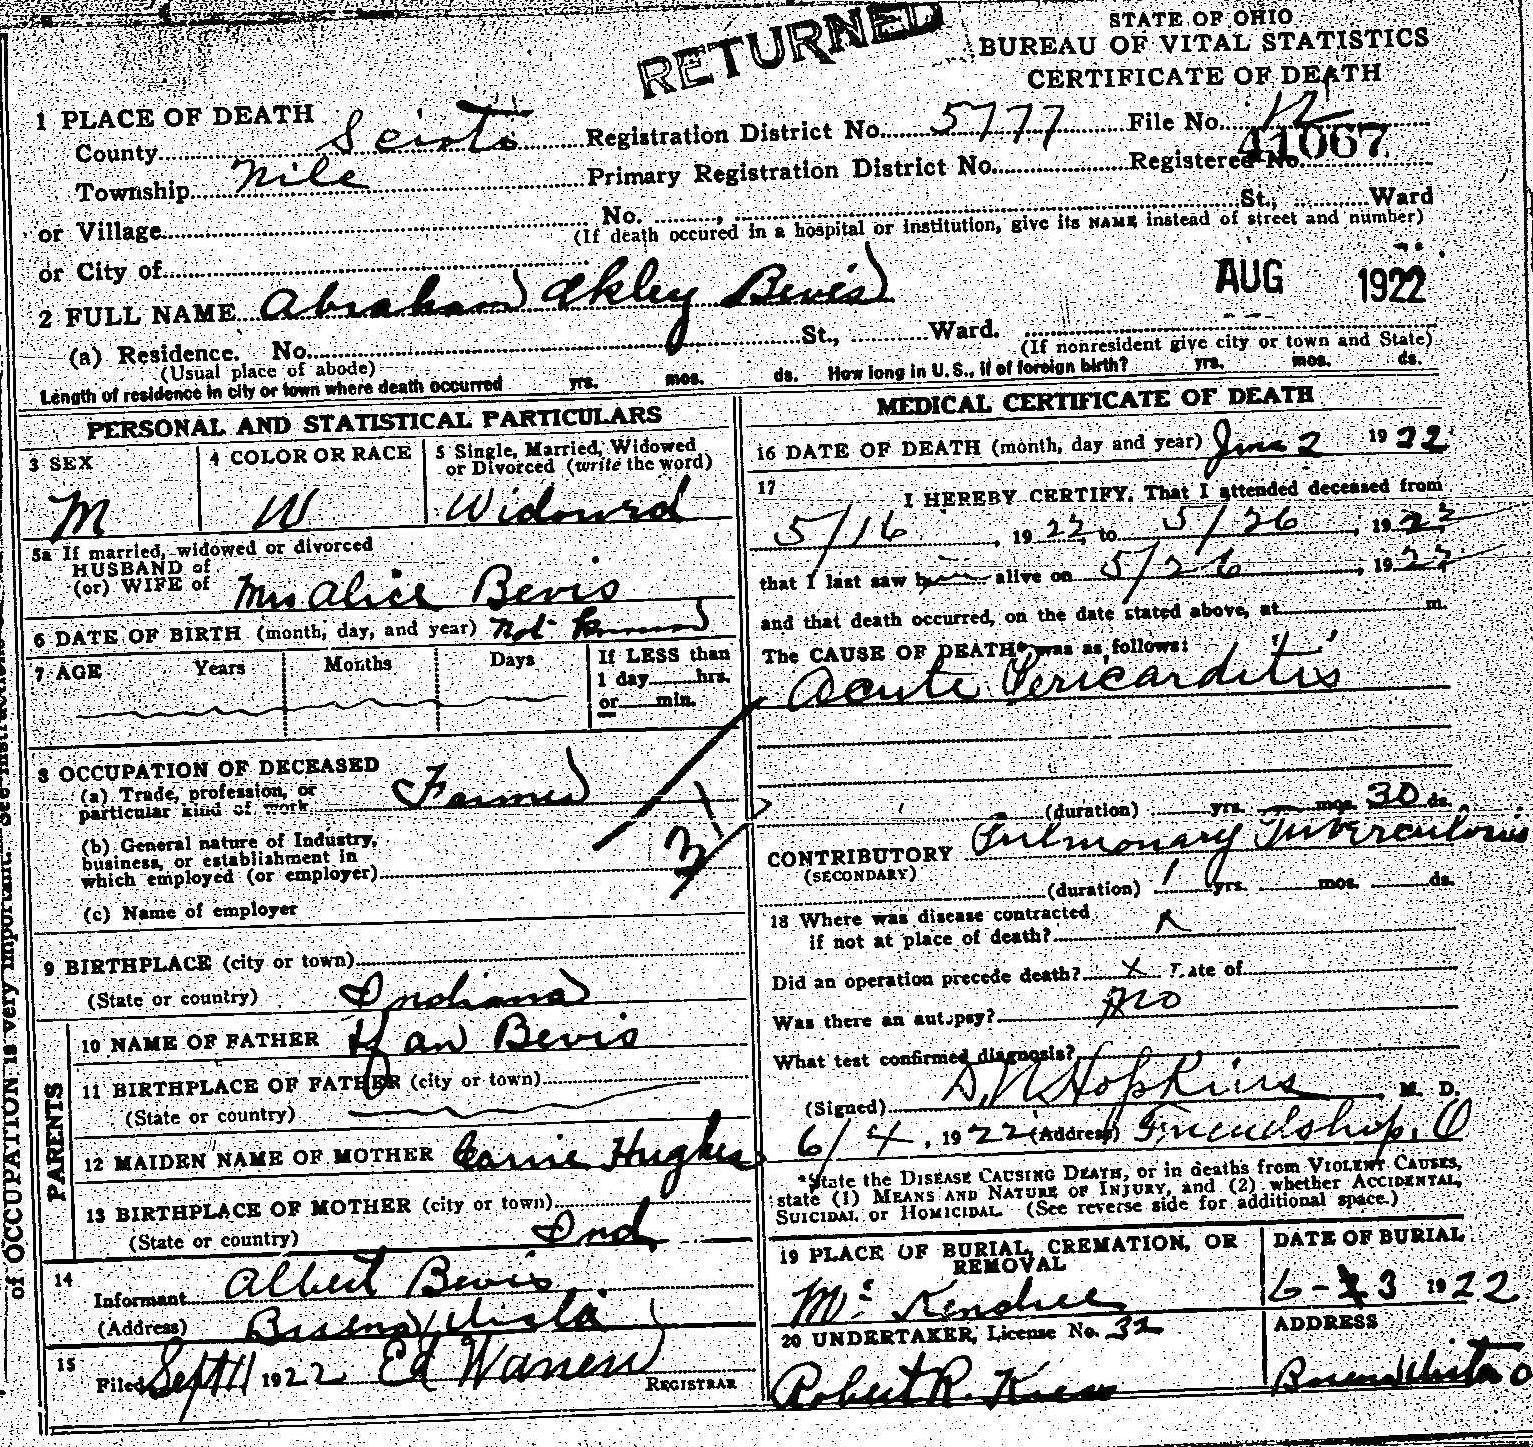 RETURNED
STATE OF OHIO
BUREAU OF VITAL STATISTICS
CERTIFICATE OF DEATH
1 PLACE OF DEATH
County Scioto Registration District No. 5777 File No.
41067
Township Nile Primary Registration District No. Registered No.
or Village No. , St., Ward
(If death occured in a hospital or institution, give its NAME instead of street and number)
or City of
AUG 1922
2 FULL NAME Abraham Ekley Bevis
(a) Residence. No. St., Ward.
(Usual place of abode) (If nonresident give city or town and State)
Length of residence in city or town where death occurred yrs. mos. ds. How long in U. S., if of foreign birth? yrs. mos. ds.
PERSONAL AND STATISTICAL PARTICULARS
3 SEX M
4 COLOR OR RACE W
5 Single, Married, Widowed
or Divorced (write the word)
Widowed
5a If married, widowed or divorced
HUSBAND of
(or) WIFE of Mrs Alice Bevis
6 DATE OF BIRTH (month, day, and year) Not Known
7 AGE Years Months Days If LESS than
1 day hrs.
or min.
8 OCCUPATION OF DECEASED
(a) Trade, profession, or
particular kind of work Farmer
(b) General nature of Industry,
business, or establishment in
which employed (or employer)
(c) Name of employer
9 BIRTHPLACE (city or town)
(State or country) Indiana
PARENTS
10 NAME OF FATHER Bevis
11 BIRTHPLACE OF FATHER (city or town)
(State or country)
12 MAIDEN NAME OF MOTHER Carrie Hughes
13 BIRTHPLACE OF MOTHER (city or town)
(State or country) Ind
14
Informant Albert Bevis
(Address) Buena Vista
15
Filed Sept 11 1922 Ed Warren
REGISTRAR
MEDICAL CERTIFICATE OF DEATH
16 DATE OF DEATH (month, day and year) June 2 1922
17 I HEREBY CERTIFY, That I attended deceased from
5/16, 1922, to 5/26, 1922
that I last saw him alive on 5/26, 1922
and that death occurred, on the date stated above, at m.
The CAUSE OF DEATH* was as follows:
Acute Pericarditis
(duration) yrs. mos. 30 ds.
CONTRIBUTORY Pulmonary Tuberculosis
(SECONDARY)
(duration) 1 yrs. mos. ds.
18 Where was disease contracted
if not at place of death?
Did an operation precede death? x Date of
Was there an autopsy? No
What test confirmed diagnosis?
(Signed) D. N Hopkins, M. D.
6/4, 1922 (Address) Friendship, O
*State the DISEASE CAUSING DEATH, or in deaths from VIOLENT CAUSES,
state (1) MEANS AND NATURE OF INJURY, and (2) whether ACCIDENTAL,
SUICIDAL or HOMICIDAL. (See reverse side for additional space.)
19 PLACE OF BURIAL, CREMATION, OR
REMOVAL
Mc Kendree
DATE OF BURIAL
6-3 1922
20 UNDERTAKER, License No. 32
Robert R.
ADDRESS
Buena Vista O
of OCCUPATION is very important. See instructions